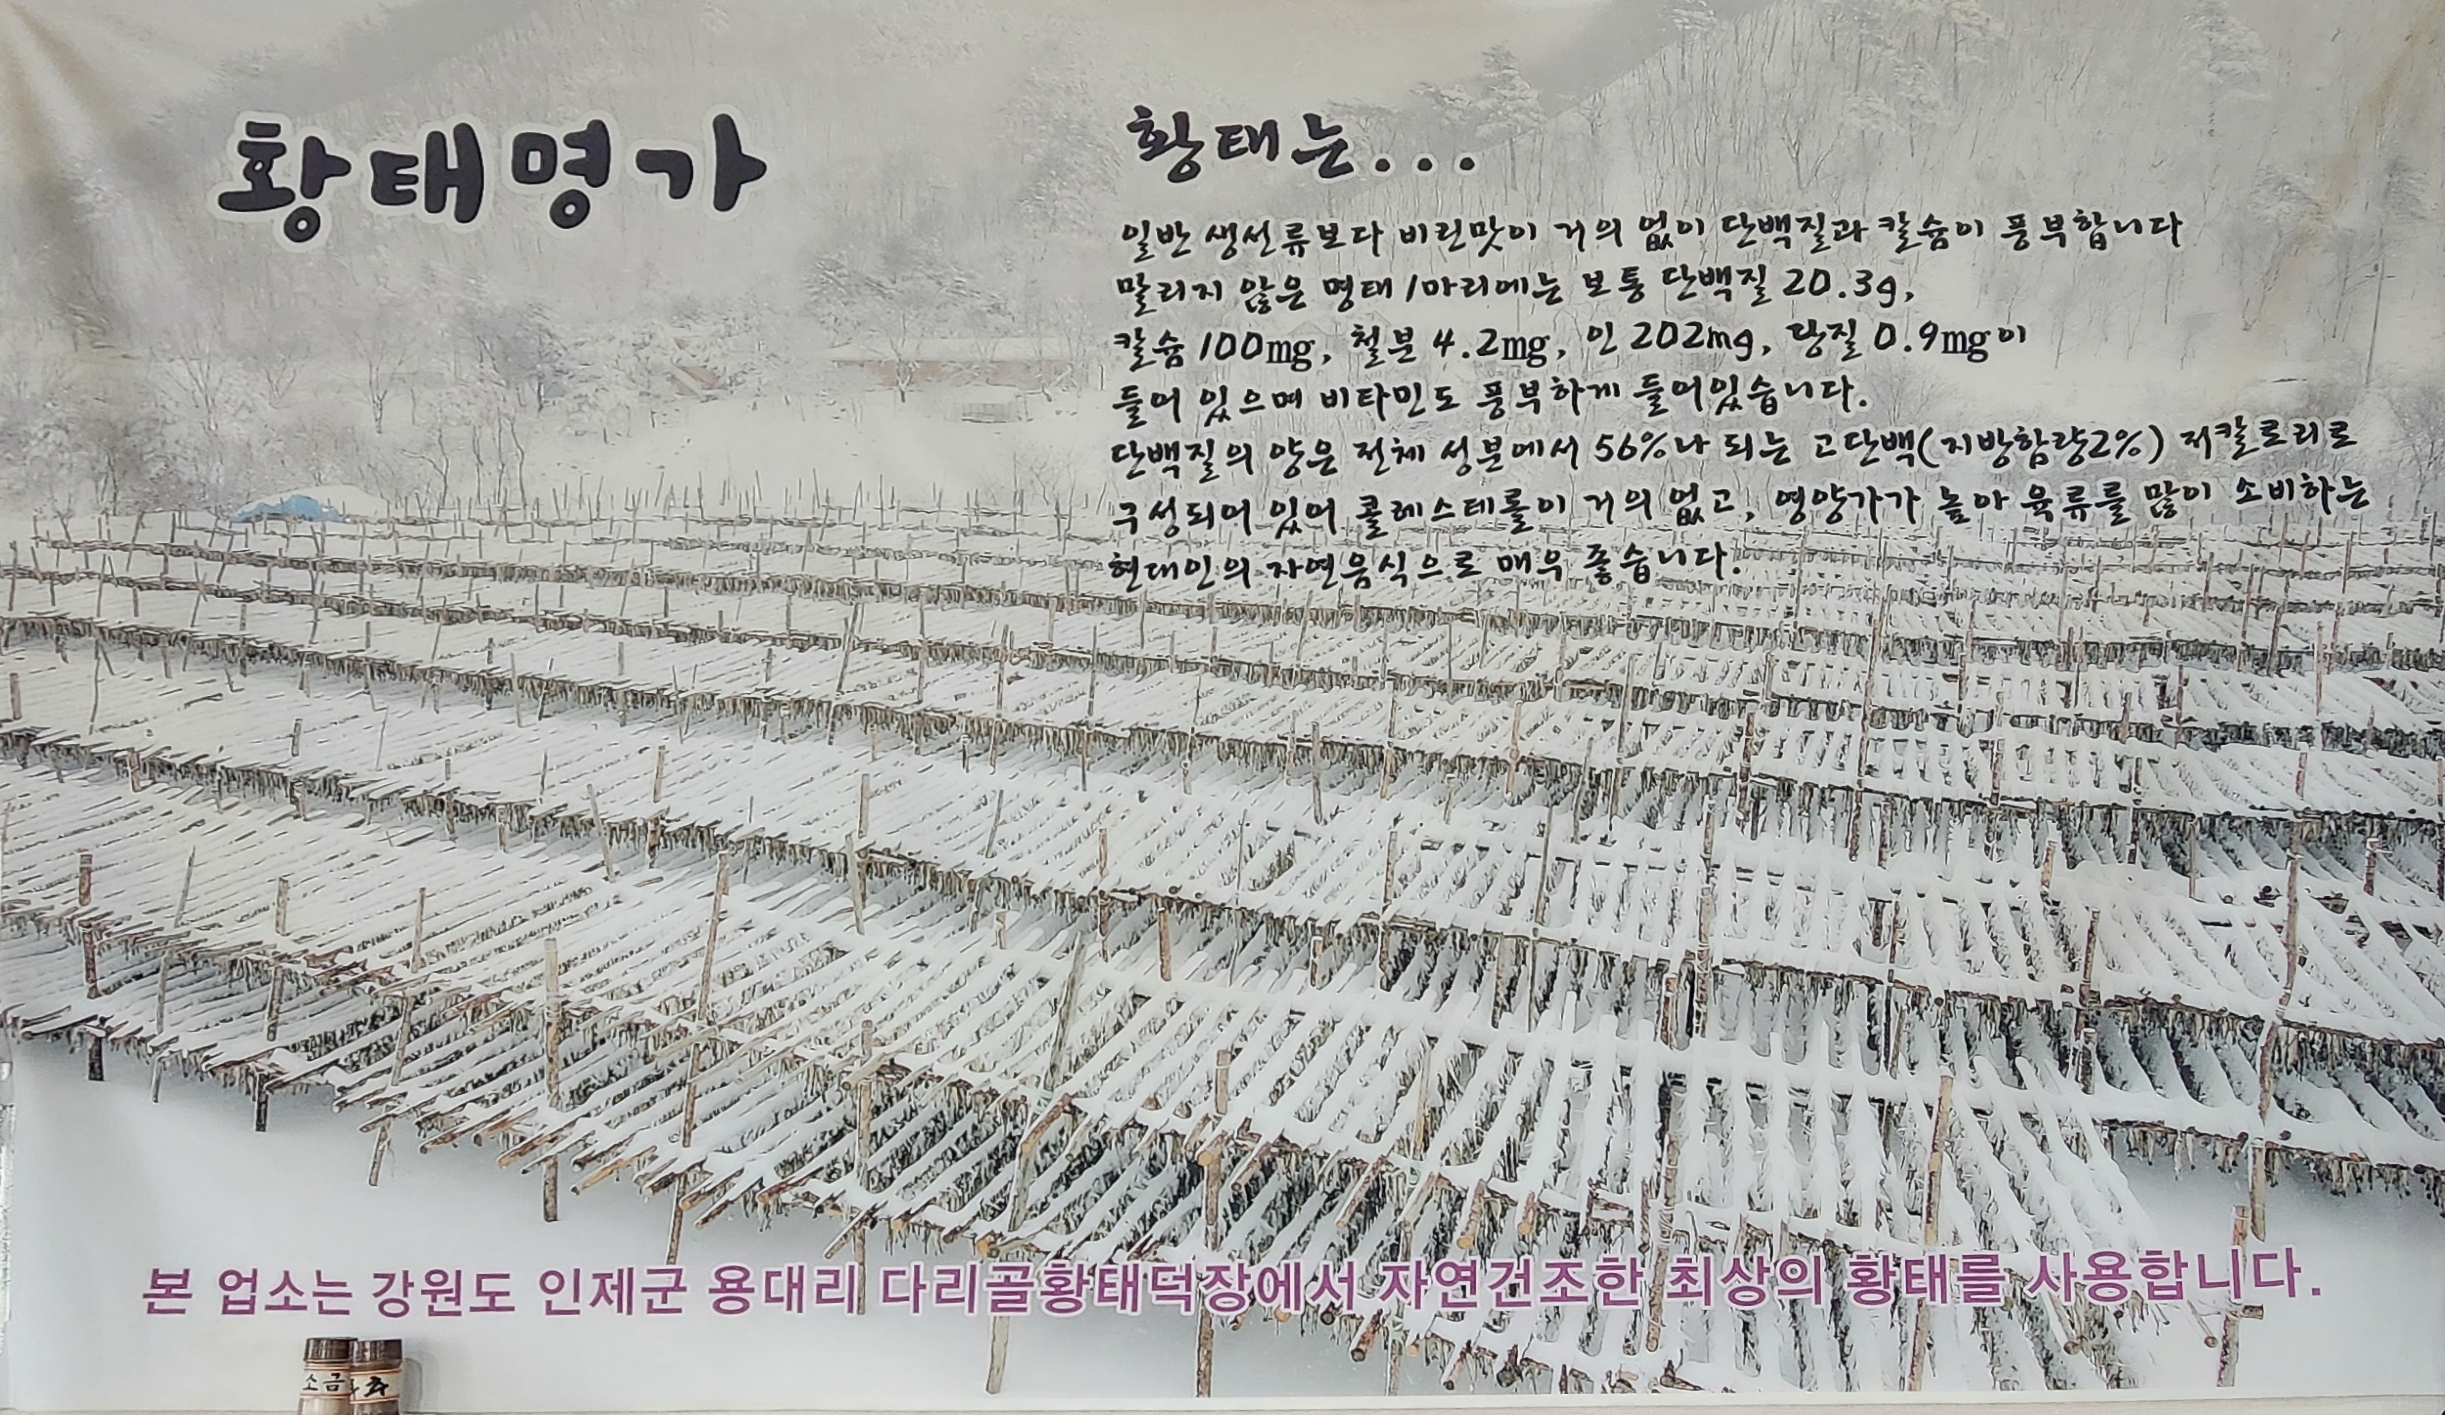 황태명가
황태는...
일반 생선류보다 비린맛이 거의 없이 단백질과 칼슘이 풍부합니다
말리지 않은 명태 1마리에는 보통 단백질 20.3g,
칼슘 100mg, 철분 4.2mg, 인 202mg, 당질 0.9mg이
들어 있으며 비타민도 풍부하게 들어있습니다.
단백질의 양은 전체 성분에서 56%나 되는 고단백(지방함량2%) 저칼로리로
구성되어 있어 콜레스테롤이 거의 없고, 영양가가 높아 육류를 많이 소비하는
현대인의 자연음식으로 매우 좋습니다.
본 업소는 강원도 인제군 용대리 다리골황태덕장에서 자연건조한 최상의 황태를 사용합니다.
소금